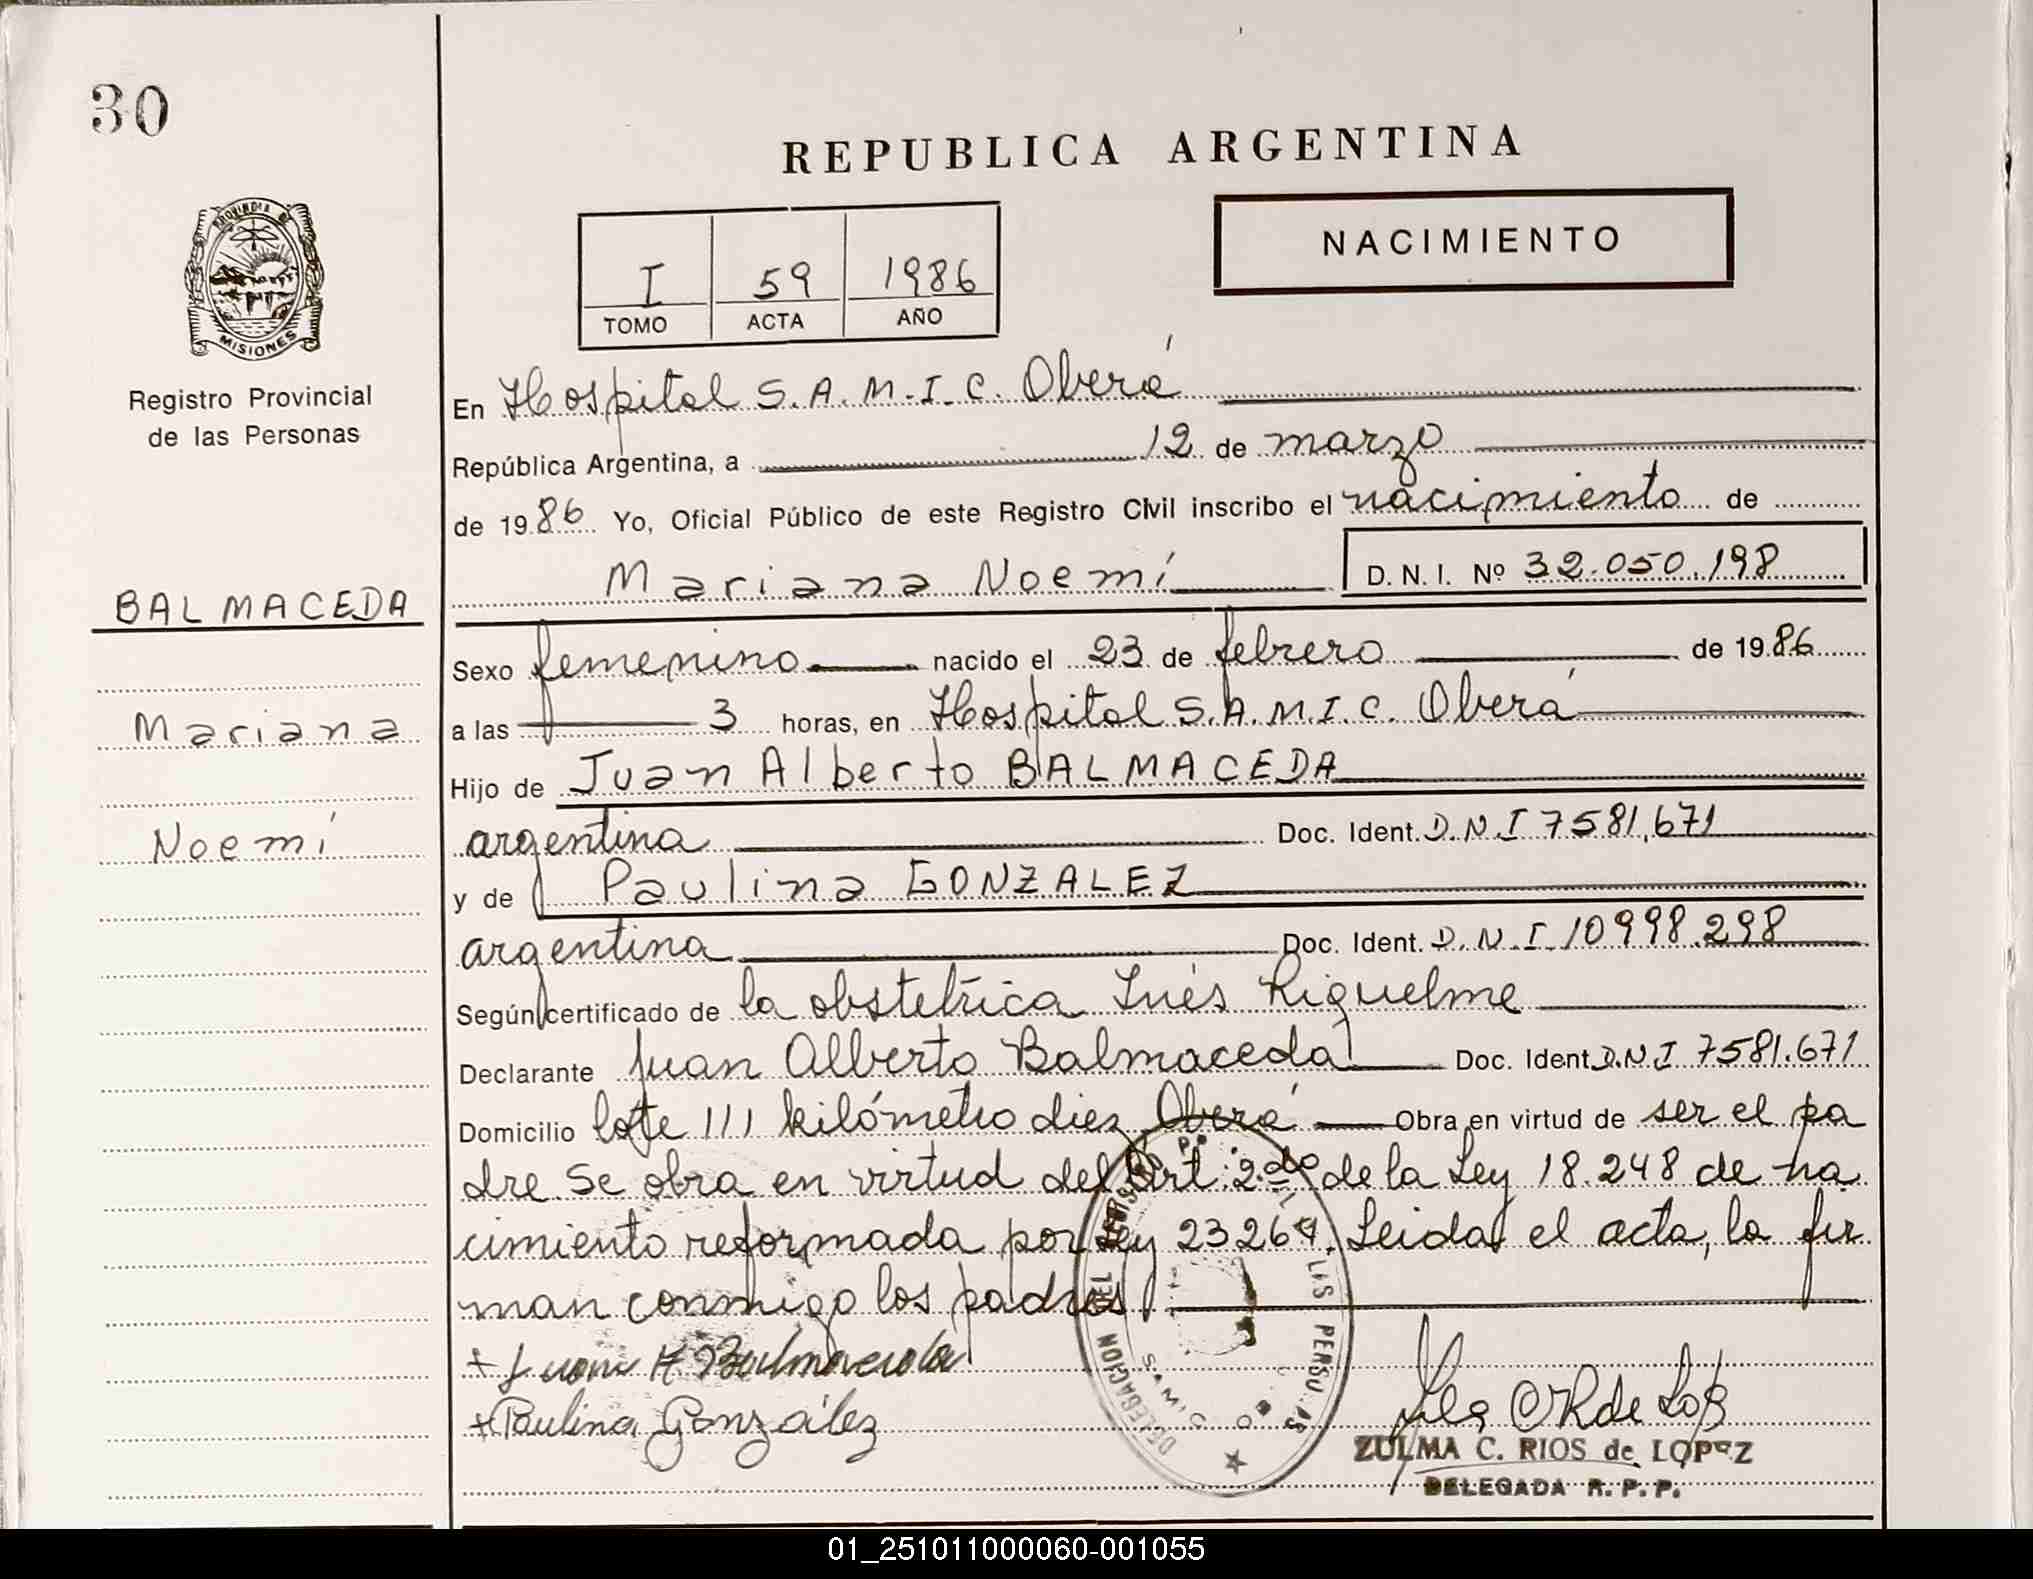 30
REPUBLICA ARGENTINA
NACIMIENTO
I 59 1986
TOMO ACTA AÑO
PROVINCIA DE
MISIONES
Registro Provincial
de las Personas
BALMACEDA
Mariana
Noemí
En Hospital S.A.M.I.C. Oberá
República Argentina, a 12 de marzo
de 1986 Yo, Oficial Público de este Registro Civil inscribo el nacimiento de
Mariana Noemí D. N. I. Nº 32.050.198
Sexo femenino nacido el 23 de febrero de 1986
a las 3 horas, en Hospital S.A.M.I.C. Oberá
Hijo de Juan Alberto BALMACEDA
argentina Doc. Ident. D.N.I 7581.671
y de Paulina GONZALEZ
argentina Doc. Ident. D.N.I. 10998.298
Según certificado de la obstetrica Inés Riquelme
Declarante Juan Alberto Balmaceda Doc. Ident. D.N.I 7581.671
Domicilio lote 111 kilómetro diez Oberá Obra en virtud de ser el pa
dre. Se obra en virtud del Art. 2do de la Ley 18.248 de na
cimiento reformada por Ley 23264. Leida el acta, la fir
man conmigo los padres
+ Juan A. Balmaceda
+ Paulina González
DELEGACION DEL LAS PERSONAS
ZULMA C. RIOS de LOPEZ
DELEGADA R. P. P.
01_251011000060-001055